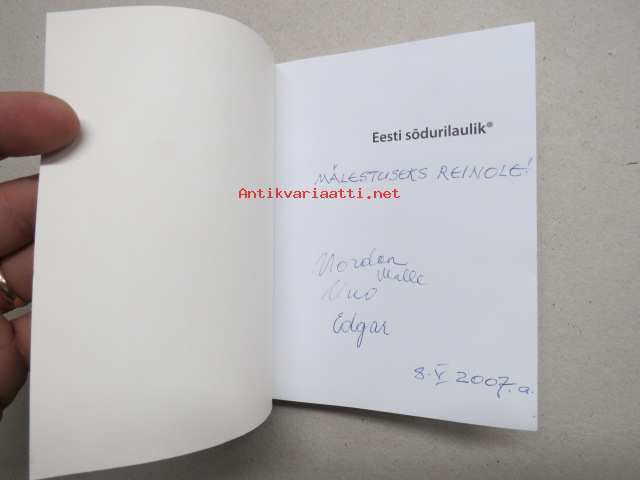 Eesti sõdurilaulik®
MÄLESTUSEKS REINOLE!
Antikvariaatti.net
Malle
Uno
Edgar
8. V 2007.a.